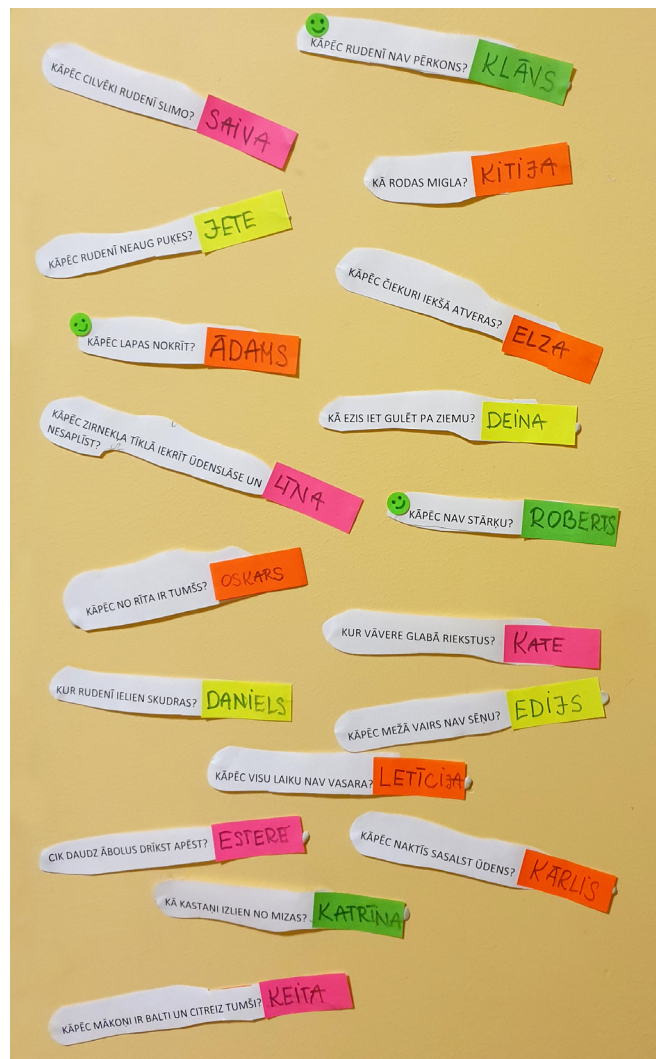 KĀPĒC RUDENĪ NAV PĒRKONS? KLĀVS
KĀPĒC CILVĒKI RUDENĪ SLIMO? SAIVA
KĀ RODAS MIGLA? KITIJA
KĀPĒC RUDENĪ NEAUG PUĶES? JETE
KĀPĒC ČIEKURI IEKŠĀ ATVERAS? ELZA
KĀPĒC LAPAS NOKRĪT? ĀDAMS
KĀ EZIS IET GULĒT PA ZIEMU? DEINA
KĀPĒC ZIRNEKĻA TĪKLĀ IEKRĪT ŪDENSLĀSE UN
NESAPLĪST? LĪNA
KĀPĒC NAV STĀRĶU? ROBERTS
KĀPĒC NO RĪTA IR TUMŠS? OSKARS
KUR VĀVERE GLABĀ RIEKSTUS? KATE
KUR RUDENĪ IELIEN SKUDRAS? DANIELS
KĀPĒC MEŽĀ VAIRS NAV SĒŅU? EDIJS
KĀPĒC VISU LAIKU NAV VASARA? LETĪCIJA
CIK DAUDZ ĀBOLUS DRĪKST APĒST? ESTERE
KĀPĒC NAKTĪS SASALST ŪDENS? KĀRLIS
KĀ KASTAŅI IZLIEN NO MIZAS? KATRĪNA
KĀPĒC MĀKOŅI IR BALTI UN CITREIZ TUMŠI? KEITA